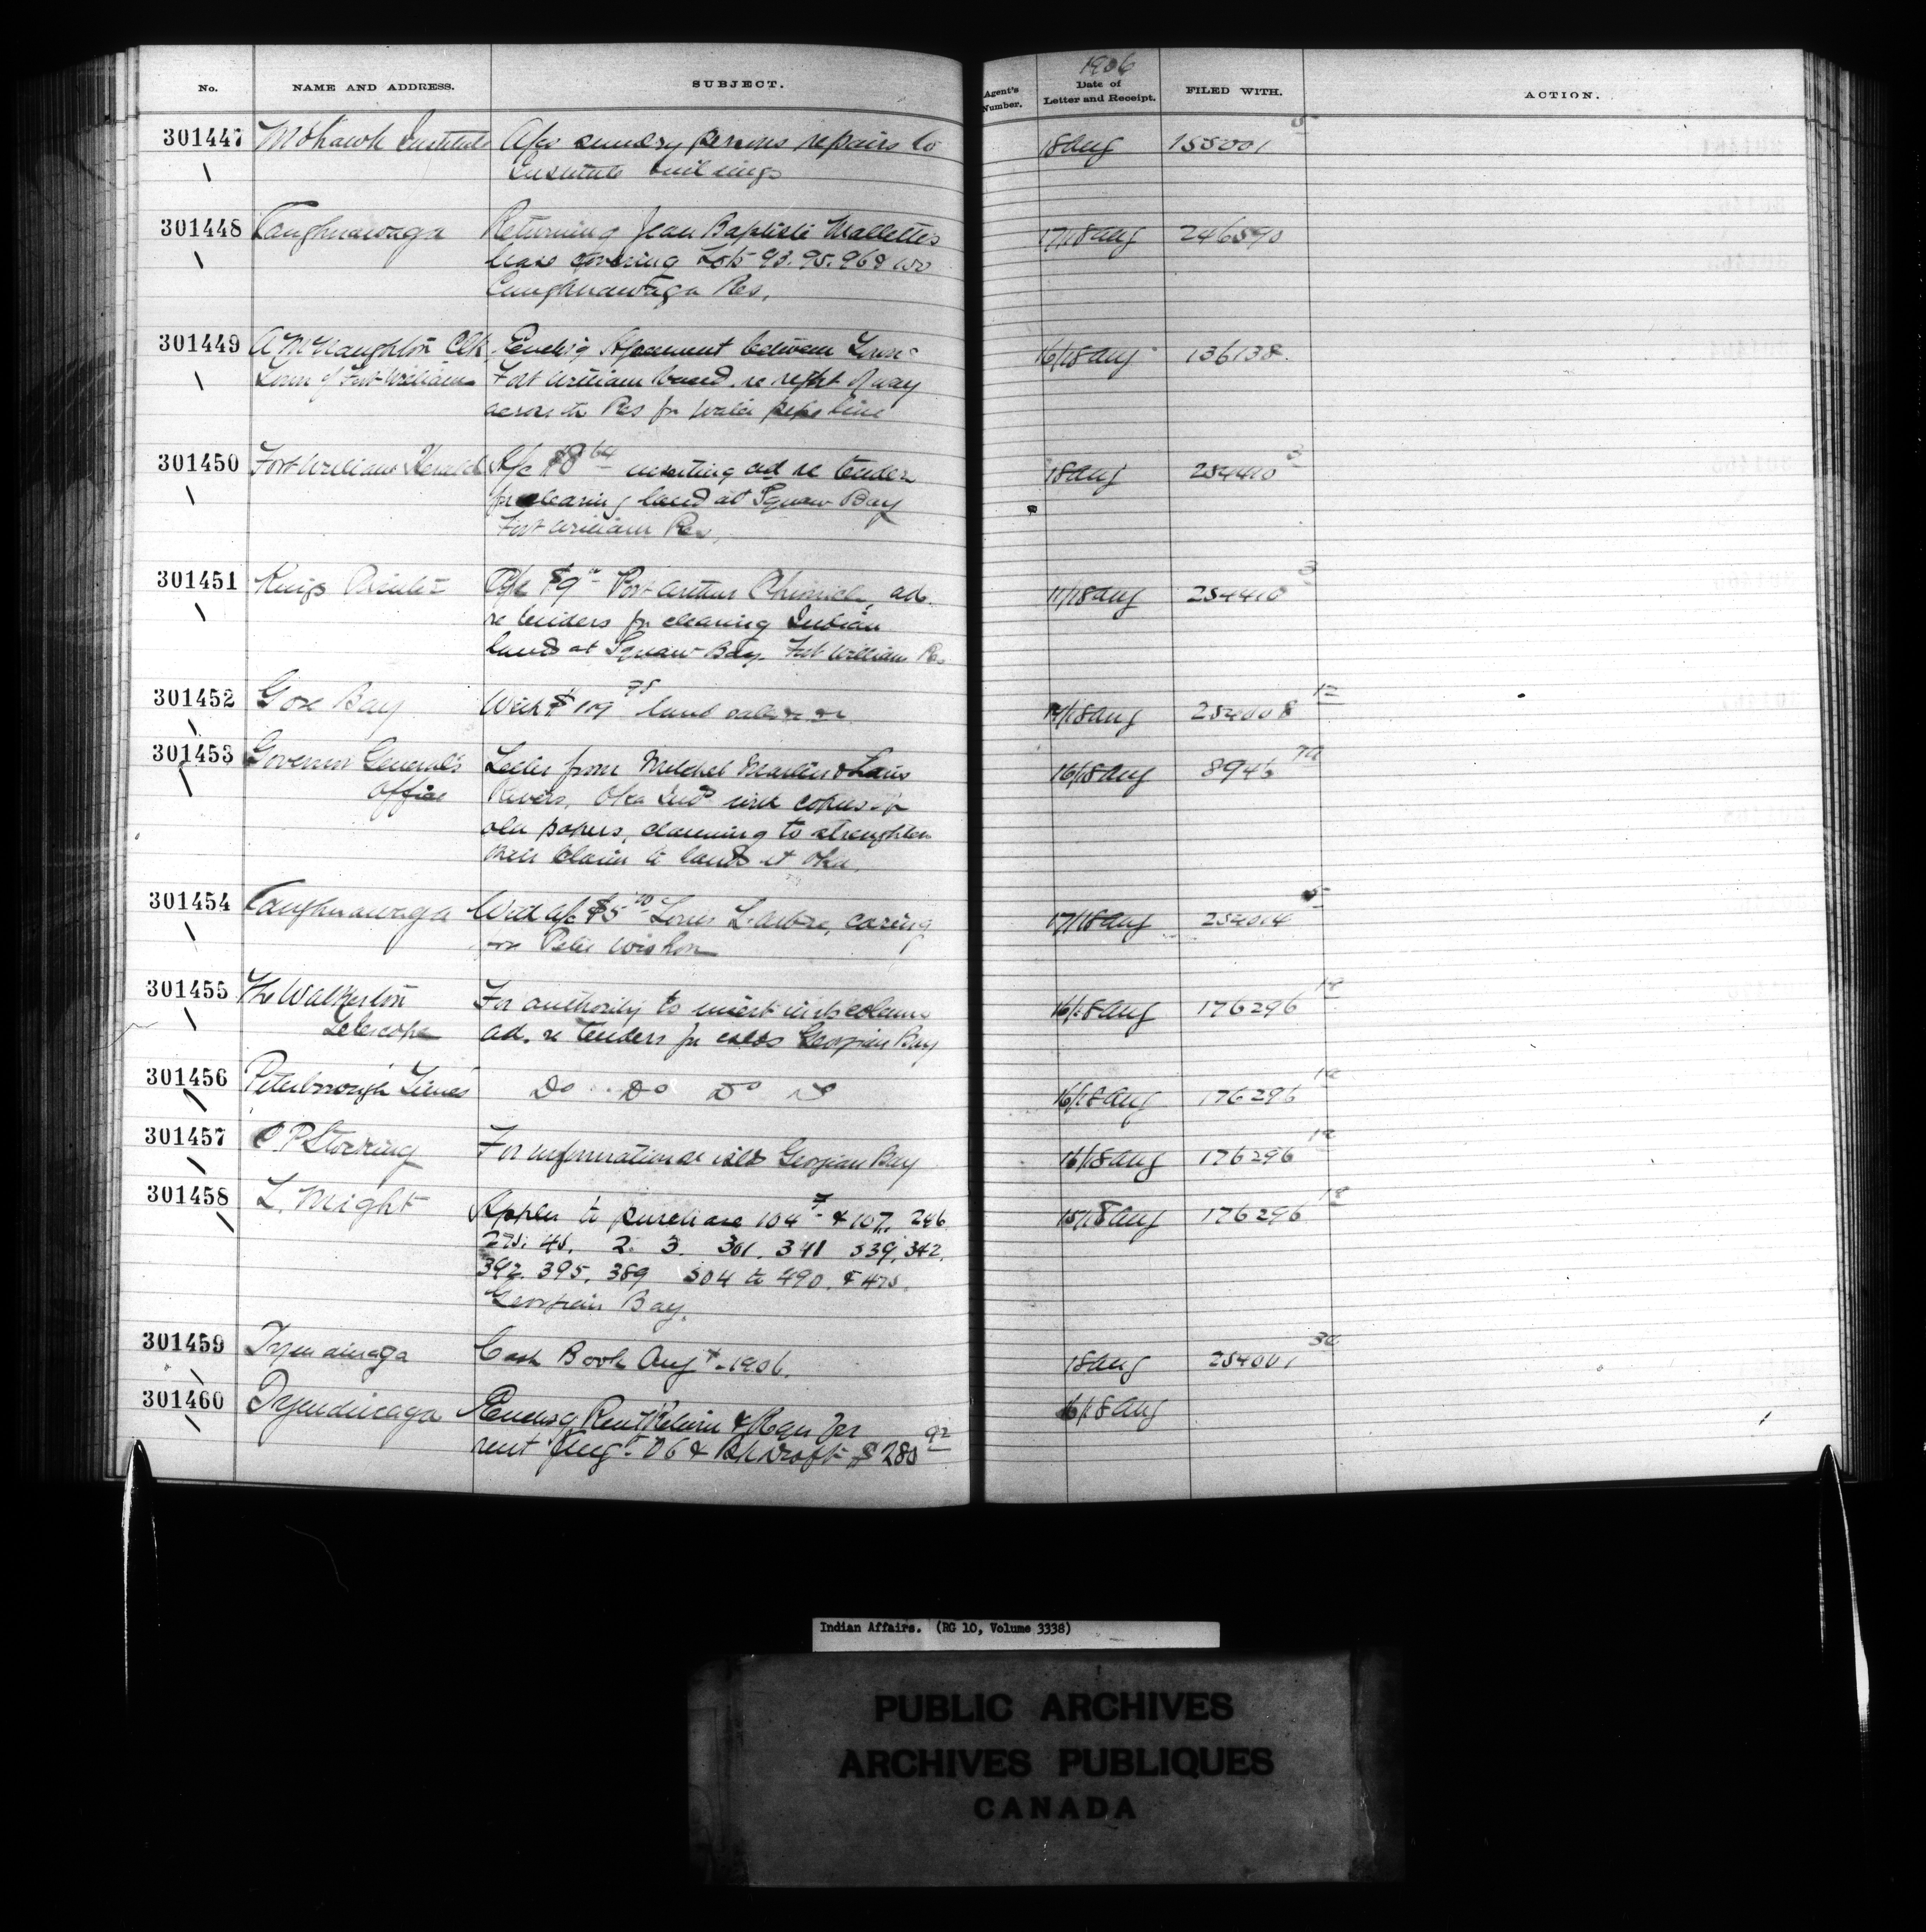 1906
No. NAME AND ADDRESS. SUBJECT. Agent's Number. Date of Letter and Receipt. FILED WITH. ACTION.
301447 Mohawk Institute A/cs sundry persons repairs to 18 Aug 155001
Institute buildings
301448 Caughnawaga Returning Jean Baptiste Mallette's 17/18 Aug 246590
lease covering Lots 93. 95. 96
Caughnawaga Res.
301449 A McNaughton Clk Enclos'g Agreement between Town 16/18 Aug 136138
Town of Fort William Fort William band. re right of way
across the Res for water pipe line
301450 Fort William Herald A/c $8 64 inserting ad re tender 18 Aug 254410 3
for clearing land at Squaw Bay
Fort William Res.
301451 Kings Printer A/c $9 Port Arthur Chronicle, ad. 17/18 Aug 254410 3
re tenders for clearing Indian
lands at Squaw Bay. Fort William Res
301452 Gore Bay With $109 78 land sales 14/18 Aug 254008 12
301453 Governor General's Letter from Mitchel Martin & Louis 16/18 Aug 8946
Office Oka Inds with copies of
old papers, claiming to strengthen
their claim to lands at Oka.
301454 Caughnawaga With a/c $5 Louis caring 17/18 Aug 254014 5
for Peter
301455 The Walkerton For authority to insert column 16/18 Aug 176296 18
Telescope ad. re tenders for islds Georgian Bay
301456 Peterborough Times Do Do Do Do 16/18 Aug 176296
301457 C P Stocking For information re islds Georgian Bay 16/18 Aug 176296
301458 L. Might Applon to purchase 104 & 107, 246 15/18 Aug 176296 18
275. 45. 2. 3. 301. 341 339, 342,
392. 395, 389 504 to 490. & 475.
Georgian Bay.
301459 Tyendinaga Cash Book Augt. 1906. 18 Aug 254001
301460 Tyendinaga Enclos'g Rent Return & Reqn for 16/18 Aug
rent Augt. 06 & Bk Draft $280 92
Indian Affairs. (RG 10, Volume 3338)
PUBLIC ARCHIVES
ARCHIVES PUBLIQUES
CANADA